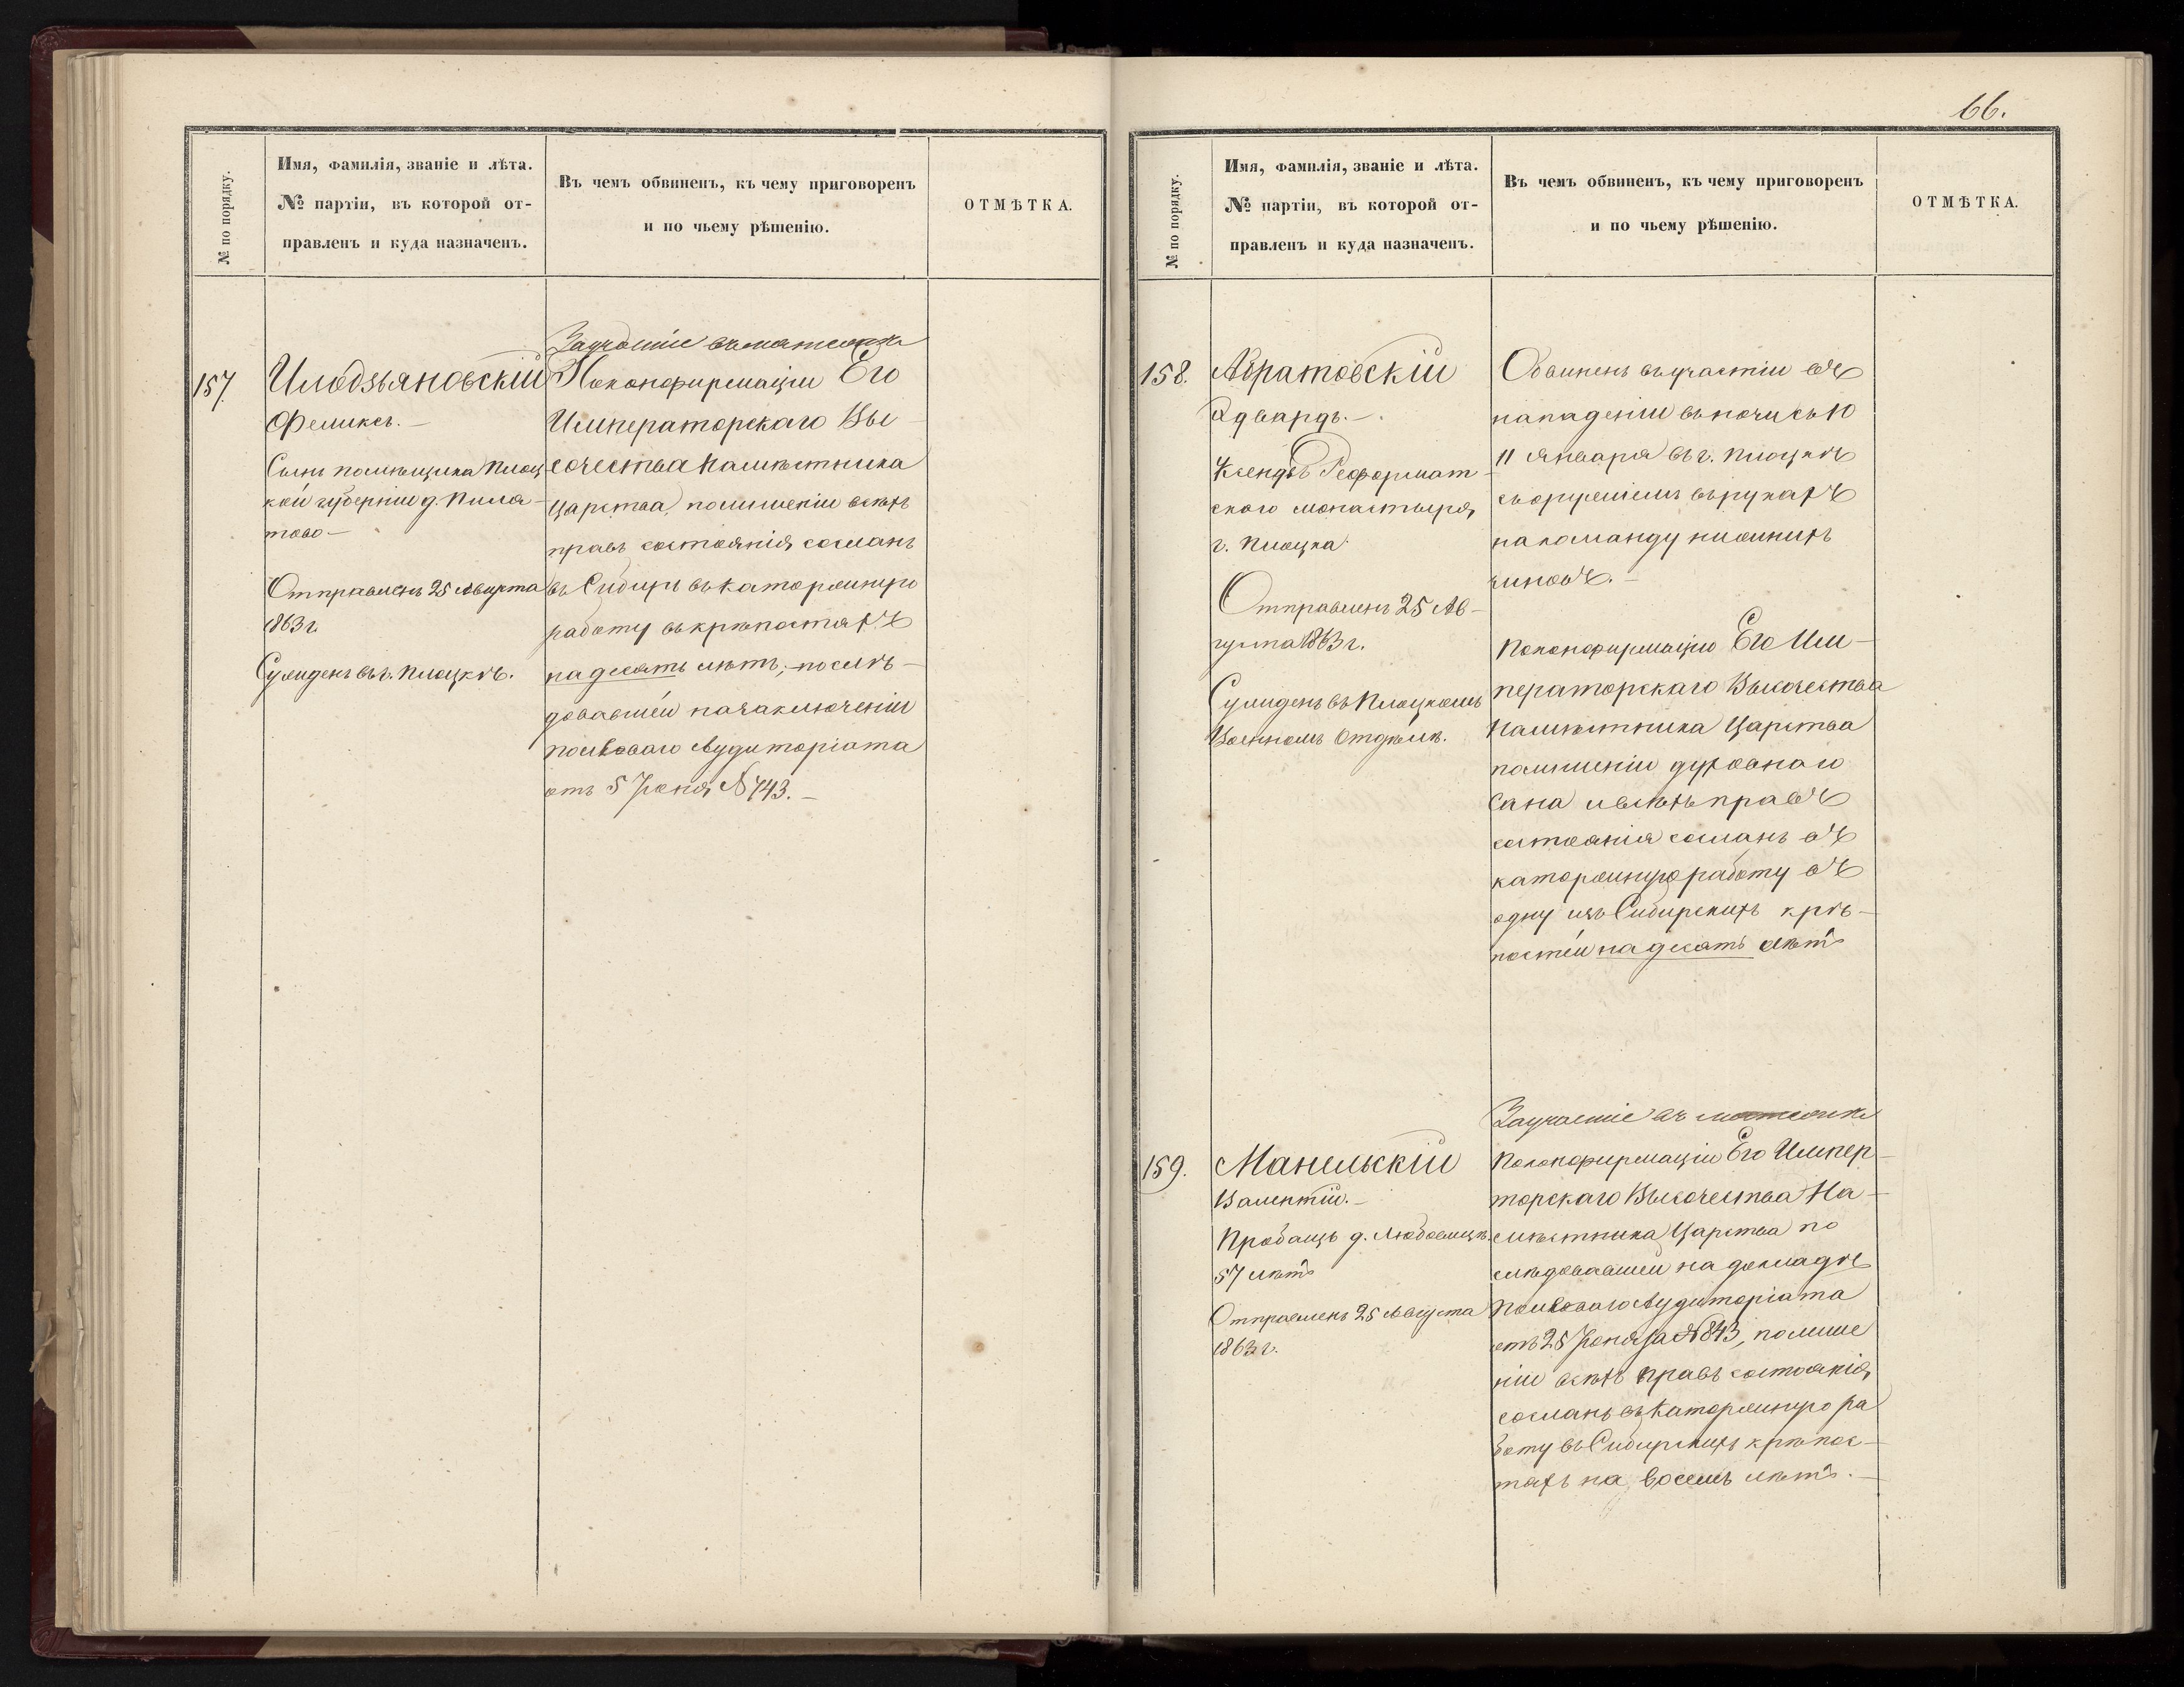 66.
№ по порядку.
Имя, фамилія, званіе и лѣта.
№ партіи, въ которой от-
правленъ и куда назначенъ.
Въ чемъ обвиненъ, къ чему приговоренъ
и по чьему рѣшенію.
ОТМѢТКА.
157.
Илодзьяновскій
Феликсъ. —
Сынъ помѣщика Плоц
кой губерніи д. Пила-
тово —
Отправленъ 25 Августа
1863 г.
Сужденъ въ г. Плоцкѣ.
За участіе въ мятежѣ
По конфирмаціи Его
Императорскаго Вы-
сочества Намѣстника
Царства, по лишеніи всѣхъ
правъ состоянія сосланъ
въ Сибирь въ каторжную
работу въ крѣпостяхъ
на десять лѣтъ, послѣ-
довавшей на заключеніи
полеваго Аудиторіата
отъ 5 Іюня № 743. —
№ по порядку.
Имя, фамилія, званіе и лѣта.
№ партіи, въ которой от-
правленъ и куда назначенъ.
Въ чемъ обвиненъ, къ чему приговоренъ
и по чьему рѣшенію.
ОТМѢТКА.
158.
Абратовскій
Эдвардъ. —
Ксендзъ Реформат-
скаго монастыря
г. Плоцка
Отправленъ 25 Ав-
густа 1863 г.
Сужденъ въ Плоцкомъ
Военномъ Отдѣлѣ.
Обвиненъ въ участіи въ
нападеніи въ ночи съ 10
11 Января въ г. Плоцкѣ
съ оружіемъ въ рукахъ
на команду нижнихъ
чиновъ. —
По конфирмаціи Его Им-
ператорскаго Высочества
Намѣстника Царства
по лишеніи духовнаго
сана и всѣхъ правъ
состоянія сосланъ въ
каторжную работу въ
одну изъ Сибирскихъ крѣ-
постей на десять лѣтъ
159.
Манельскій
Валентій. —
Пробащъ д.
57 лѣтъ
Отправленъ 25 Августа
1863 г.
За участіе въ мятежѣ
По конфирмаціи Его Импер-
торскаго Высочества На-
мѣстника Царства по
слѣдовавшей на докладѣ
Полеваго Аудиторіата
отъ 25 Іюня за № 843, по лише
ніи всѣхъ правъ состоянія
сосланъ въ Каторжную ра
боту въ Сибирскихъ крѣпос-
тяхъ на восемь лѣтъ. —